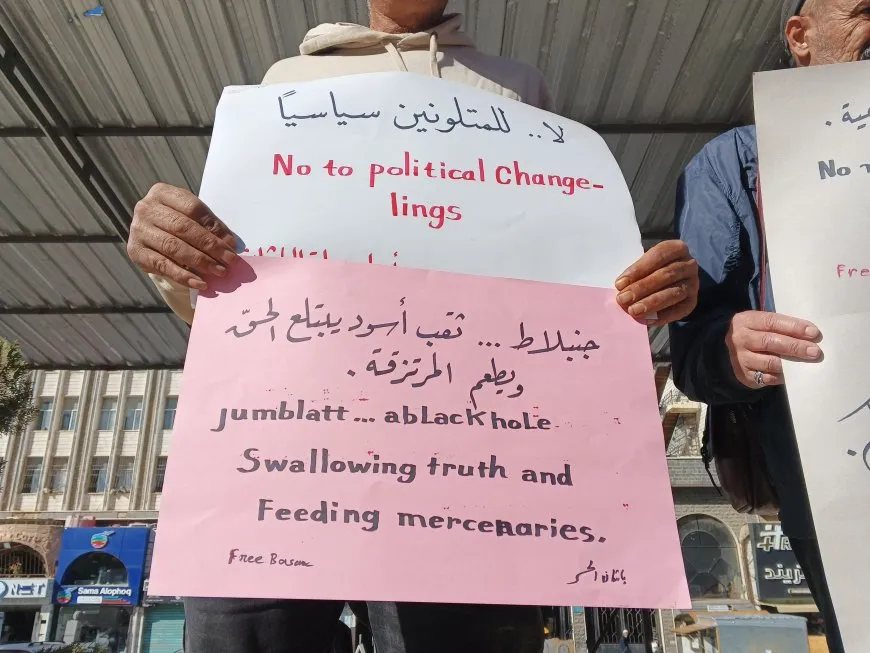 لا.. للمتلونين سياسيًا
No to political Change-
lings
جنبلاط ... ثقب أسود يبتلع الحقّ
ويطعم المرتزقة.
jumblatt... ablack hole
Swallowing truth and
Feeding mercenaries.
Free Bousan
باثان الحر
No
Free
NET
Sama Alophoq